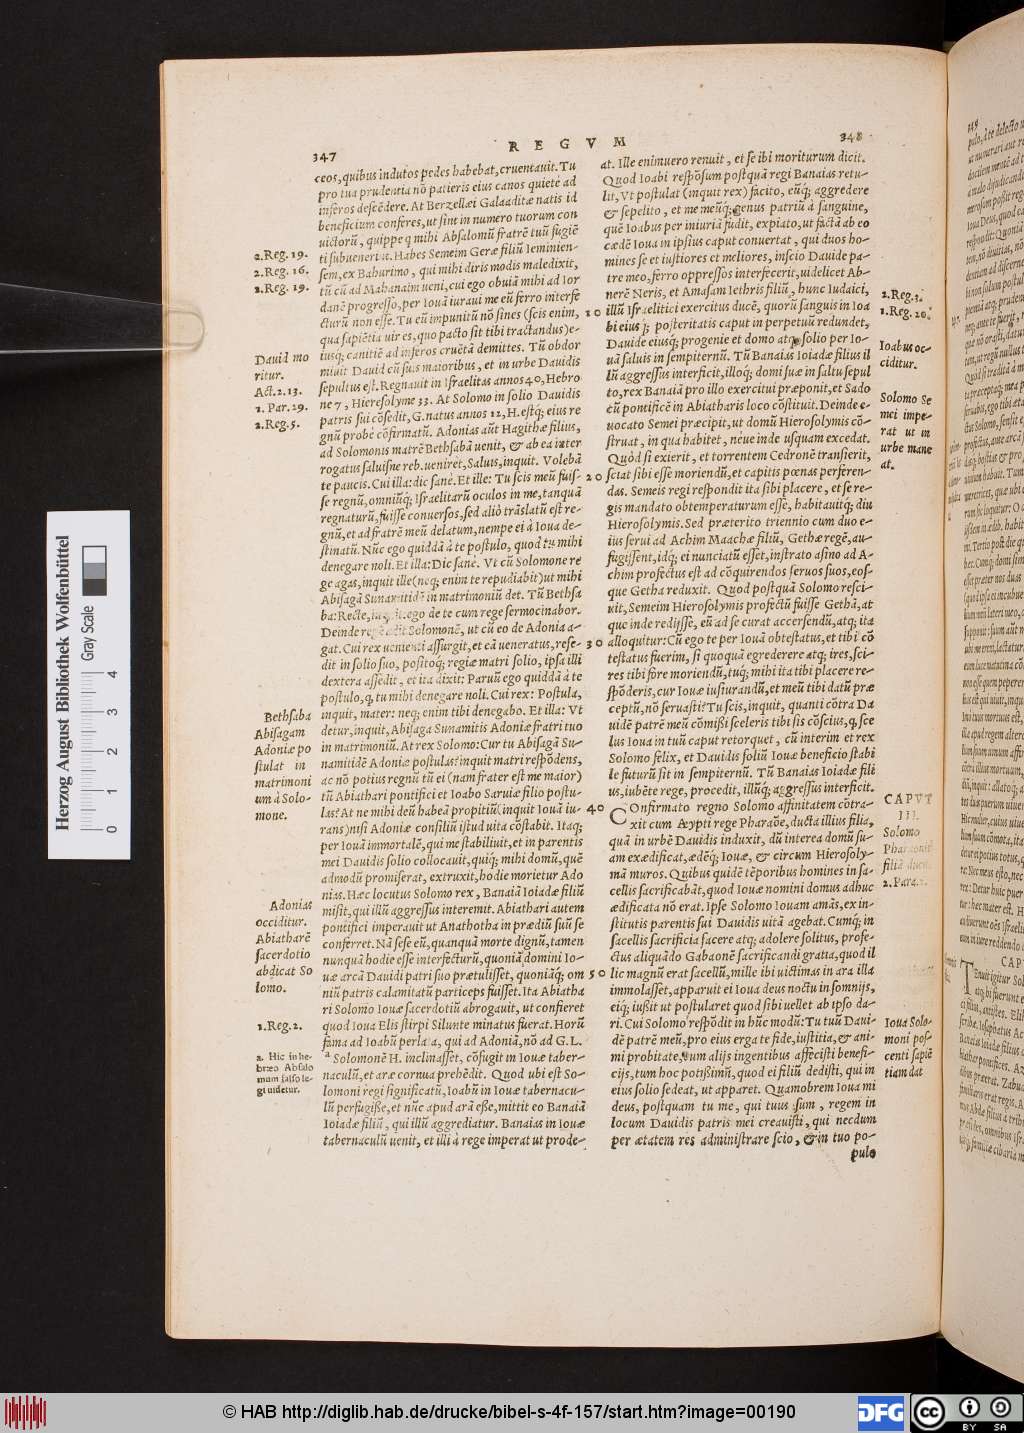 REGVM
347
348
ceos, quibus indutos pedes habebat, cruentauit. Tu
pro tua prudentia nō patieris eius canos quietè ad
inferos descēdere. At Berzellæi Galaaditæ natis id
beneficium conferes, ut sint in numero tuorum con
uictorū, quippe q mihi Absalomū fratrē tuū fugiē
ti subuenerint. Habes Semeim Geræ filiū Ieminien-
sem, ex Bahurimo, qui mihi diris modis maledixit,
tū cū ad Mahanaim ueni, cui ego obuiā mihi ad Ior
danē progresso, per Iouā iuraui me eū ferro interfe
cturū non esse. Tu eū impunitū nō sines (scis enim,
qua sapiētia uir es, quo pacto sit tibi tractandus) e-
iusq; canitiē ad inferos cruētā demittes. Tū obdor
miuit Dauid cū suis maioribus, et in urbe Dauidis
sepultus est. Regnauit in Israelitas annos 40, Hebro
ne 7, Hierosolymæ 33. At Solomo in solio Dauidis
patris sui cōsedit, G. natus annos 12, H. estq; eius re
gnū probè cōfirmatū. Adonias aūt Hagithæ filius,
ad Solomonis matrē Bethsabā uenit, & ab ea inter
rogatus saluísne reb. ueniret, Saluis, inquit. Volebā
te paucis. Cui illa: dic sanè. Et ille: Tu scis meū fuis-
se regnū, omniūq; Israelitarū oculos in me, tanquā
regnaturū, fuisse conuersos, sed aliò trāslatū est re-
gnū, et ad fratrē meū delatum, nempe ei à Ioua de-
stinatū. Nūc ego quiddā à te postulo, quod tu mihi
denegare noli. Et illa: Dic sanè. Vt cū Solomone re
ge agas, inquit ille (neq; enim te repudiabit) ut mihi
Abisagā Sunamitidē in matrimoniū det. Tū Bethsa
ba: Rectè, inquit: ego de te cum rege sermocinabor.
Deinde Solomonē, ut cū eo de Adonia a-
gat. Cui rex uenienti assurgit, et eā ueneratus, rese-
dit in solio suo, positoq; regiæ matri solio, ipsa illi
dextera assedit, et ita dixit: Paruū ego quiddā à te
postulo, q, tu mihi denegare noli. Cui rex: Postula,
inquit, mater: neq; enim tibi denegabo. Et illa: Vt
detur, inquit, Abisaga Sunamitis Adoniæ fratri tuo
in matrimoniū. At rex Solomo: Cur tu Abisagā Su-
namitidē Adoniæ postulas? inquit matri respōdens,
ac nō potius regnū tū ei (nam frater est me maior)
tū Abiathari pontifici et Ioabo Saruiæ filio postu-
las? At ne mihi deū habeā propitiū (inquit Iouā iu-
rans) nisi Adoniæ consiliū istud uita cōstabit. Itaq;
per Iouā immortalē, qui me stabiliuit, et in parentis
mei Dauidis solio collocauit, quiq; mihi domū, quē
admodū promiserat, extruxit, hodie morietur Ado
nias. Hæc locutus Solomo rex, Banaiā Ioiadæ filiū
misit, qui illū aggressus interemit. Abiathari autem
pontifici imperauit ut Anathotha in prædiū suū se
conferret. Nā sese eū, quanquā morte dignū, tamen
nunquā hodie esse interfecturū, quoniā domini Io-
uæ arcā Dauidi patri suo prætulisset, quoniāq; om
niū patris calamitatū particeps fuisset. Ita Abiatha
ri Solomo Iouæ sacerdotiū abrogauit, ut confieret
quod Ioua Elis stirpi Silunte minatus fuerat. Horū
fama ad Ioabū perlata, qui ad Adoniā, nō ad G. L.
a Solomonē H. inclinasset, cōfugit in Iouæ taber-
naculū, et aræ cornua prehēdit. Quod ubi est So-
lomoni regi significatū, Ioabū in Iouæ tabernacu-
lū perfugisse, et nūc apud arā esse, mittit eo Banaiā
Ioiadæ filiū, qui illū aggrediatur. Banaias in Iouæ
tabernaculū uenit, et illi à rege imperat ut prode-
2. Reg. 19.
2. Reg. 16.
2. Reg. 19.
Dauid mo
ritur.
Act. 2. 13.
1. Par. 29.
2. Reg. 5.
Bethsaba
Abisagam
Adoniæ po
stulat in
matrimoni
um à Solo-
mone.
Adonias
occiditur.
Abiatharē
sacerdotio
abdicat So
lomo.
1. Reg. 2.
a. Hic in he-
bræo Absalo
mum falso le-
gi uidetur.
at. Ille enimuero renuit, et se ibi moriturum dicit.
Quod Ioabi respōsum postquā regi Banaias retu-
lit, Vt postulat (inquit rex) facito, eūq; aggredere
& sepelito, et me meūq; genus patriū à sanguine,
quē Ioabus per iniuriā fudit, expiato, ut factā ab eo
cædē Ioua in ipsius caput conuertat, qui duos ho-
mines se et iustiores et meliores, inscio Dauide pa-
tre meo, ferro oppressos interfecerit, uidelicet Ab-
nerē Neris, et Amasam Iethris filiū, hunc Iudaici,
10 illū Israelitici exercitus ducē, quorū sanguis in Ioa
bi eiusq; posteritatis caput in perpetuū redundet,
Dauide eiusq; progenie et domo atq; solio per Io-
uā saluis in sempiternū. Tū Banaias Ioiadæ filius il
lū aggressus interficit, illoq; domi suæ in saltu sepul
to, rex Banaiā pro illo exercitui præponit, et Sado
cū pontificē in Abiatharis loco cōstituit. Deinde e-
uocato Semei præcipit, ut domū Hierosolymis cō-
struat, in qua habitet, néue inde usquam excedat.
Quòd si exierit, et torrentem Cedronē transierit,
20 sciat sibi esse moriendū, et capitis pœnas perferen-
das. Semeis regi respondit ita sibi placere, et se re-
gis mandato obtemperaturum esse, habitauitq; diu
Hierosolymis. Sed præterito triennio cum duo e-
ius serui ad Achim Maachæ filiū, Gethæ regē, au-
fugissent, idq; ei nunciatū esset, instrato asino ad A-
chim profectus est ad cōquirendos seruos suos, eos-
que Getha reduxit. Quod postquā Solomo resci-
uit, Semeim Hierosolymis profectū fuisse Gethā, at
que inde redijsse, eū ad se curat accersendū, atq; ita
30 alloquitur: Cū ego te per Iouā obtestatus, et tibi cō
testatus fuerim, si quoquā egrederere atq; ires, sci-
res tibi fore moriendū, tuq; mihi ita tibi placere re-
spōderis, cur Iouæ iusiurandū, et meū tibi datū præ
ceptū, nō seruasti? Tu scis, inquit, quanti cōtra Da
uidē patrē meū cōmissi sceleris tibi sis cōscius, q, sce
lus Ioua in tuū caput retorquet, cū interim et rex
Solomo felix, et Dauidis soliū Iouæ beneficio stabi
le futurū sit in sempiternū. Tū Banaias Ioiadæ fili
us, iubēte rege, procedit, illūq; aggressus interficit.
40 COnfirmato regno Solomo affinitatem cōtra-
xit cum Ægypti rege Pharaōe, ducta illius filia,
quā in urbē Dauidis induxit, dū interea domū su-
am exædificat, ædēq; Iouæ, & circum Hierosoly-
mā muros. Quibus quidē tēporibus homines in sa-
cellis sacrificabāt, quod Iouæ nomini domus adhuc
ædificata nō erat. Ipse Solomo Iouam amās, ex in-
stitutis parentis sui Dauidis uitā agebat. Cumq; in
sacellis sacrificia facere atq; adolere solitus, profe-
ctus aliquādo Gabaonē sacrificandi gratia, quod il
50 lic magnū erat sacellū, mille ibi uictimas in ara illa
immolasset, apparuit ei Ioua deus noctu in somnijs,
eiq; iussit ut postularet quod sibi uellet ab ipso da-
ri. Cui Solomo respōdit in hūc modū: Tu tuū Daui-
dē patrē meū, pro eius erga te fide, iustitia, & ani-
mi probitate, cum alijs ingentibus affecisti benefi-
cijs, tum hoc potißimū, quod ei filiū dedisti, qui in
eius solio sedeat, ut apparet. Quamobrem Ioua mi
deus, postquam tu me, qui tuus sum, regem in
locum Dauidis patris mei creauisti, qui necdum
per ætatem res administrare scio, & in tuo po-
pulo
2. Reg. 3.
1. Reg. 20.
Ioabus oc-
ciditur.
Solomo Se
mei impe-
rat ut in
urbe mane
at.
CAPVT
III.
Solomo
Pharaonis
filiā
2. Para. 1.
Ioua Solo-
moni pos-
centi sapiē
tiam dat
Herzog August Bibliothek Wolfenbüttel
Gray Scale
0 1 2 3 4
© HAB http://diglib.hab.de/drucke/bibel-s-4f-157/start.htm?image=00190
DFG
cc
BY SA